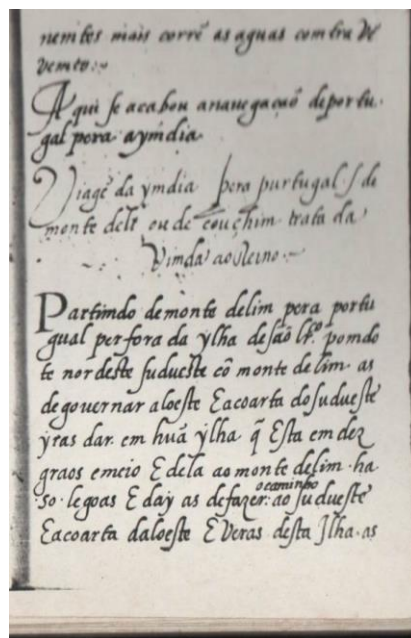 nemtes mais corrẽ as aguas comtra ho
vemto:~
Aqui se acabou a navegaçaõ de portu-
gal pera a ymdia.
Viagẽ da ymdia pera purtugal .s. de
monte deli ou de couchim trata da
Vimda ao Reino.~
Partimdo de monte delim pera portu
gual per fora da ylha de saõ lr.ço pomdo
te nordeste suduestte cõ monte delim. as
de governar a loeste E a coarta do sudueste
yras dar em huã ylha q̃ Esta em dez
graos e meio E dela ao monte delim. ha
.80. legoas E day as de fazer. o caminho ao sudueste
E a coarta da loeste E Veras desta Jlha. as